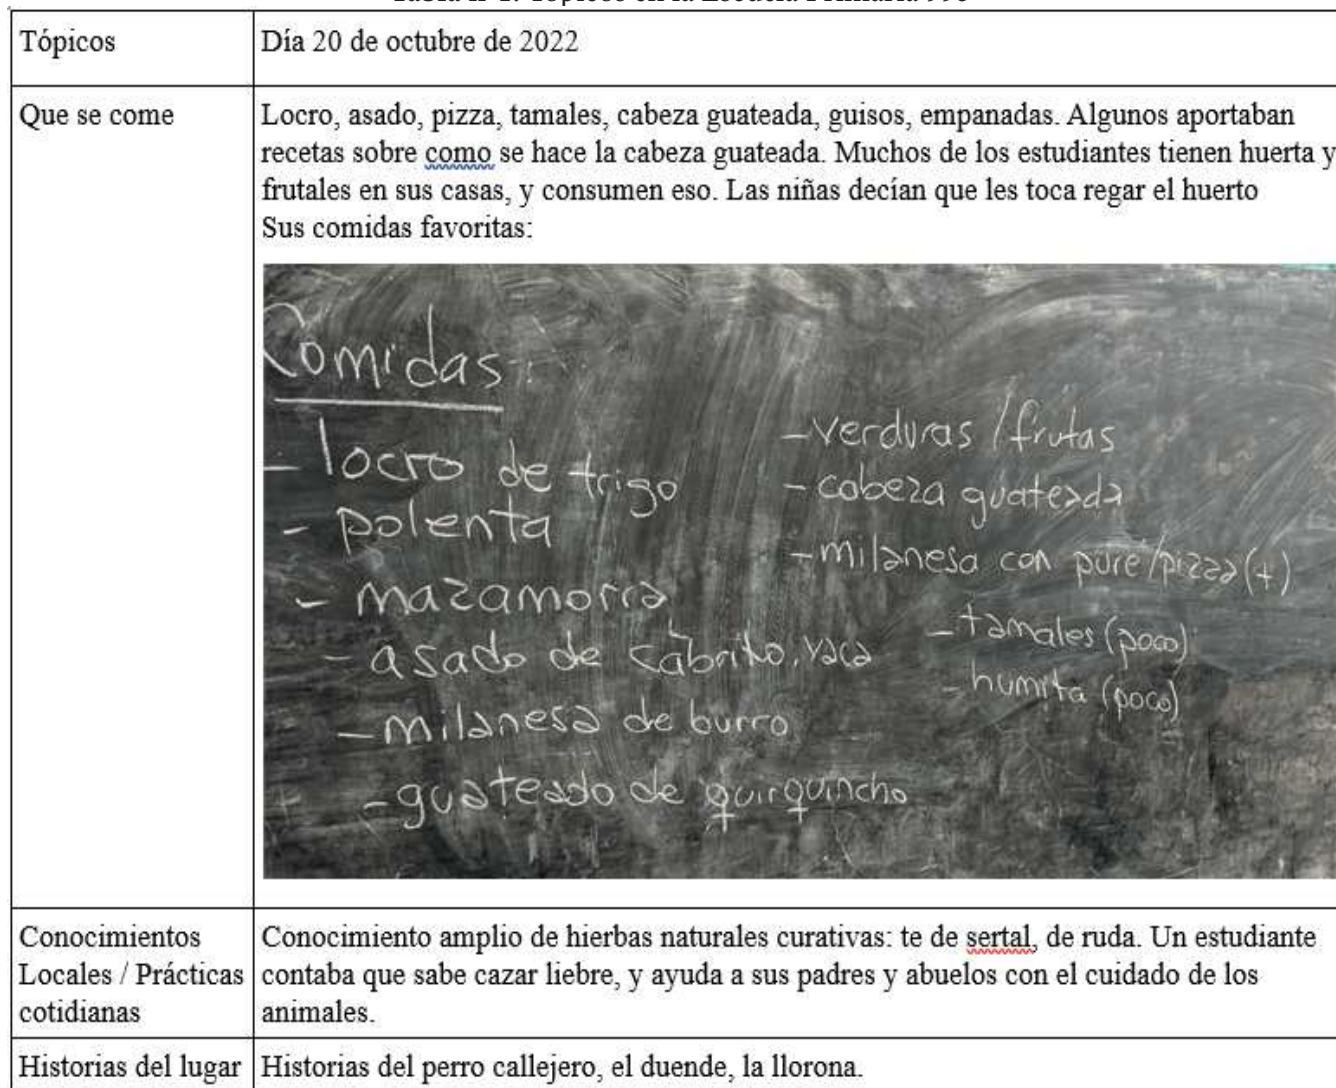 Tópicos
Día 20 de octubre de 2022
Que se come
Locro, asado, pizza, tamales, cabeza guateada, guisos, empanadas. Algunos aportaban
recetas sobre como se hace la cabeza guateada. Muchos de los estudiantes tienen huerta y
frutales en sus casas, y consumen eso. Las niñas decían que les toca regar el huerto
Sus comidas favoritas:
Comidas
- locro de trigo
- polenta
- mazamorra
- asado de cabrito, vaca
- milanesa de burro
- guateado de quirquincho
- verduras / frutas
- cabeza guateada
- milanesa con puré/pizza (+)
- tamales (poco)
- humita (poco)
Conocimientos
Locales / Prácticas
cotidianas
Conocimiento amplio de hierbas naturales curativas: te de sertal, de ruda. Un estudiante
contaba que sabe cazar liebre, y ayuda a sus padres y abuelos con el cuidado de los
animales.
Historias del lugar
Historias del perro callejero, el duende, la llorona.